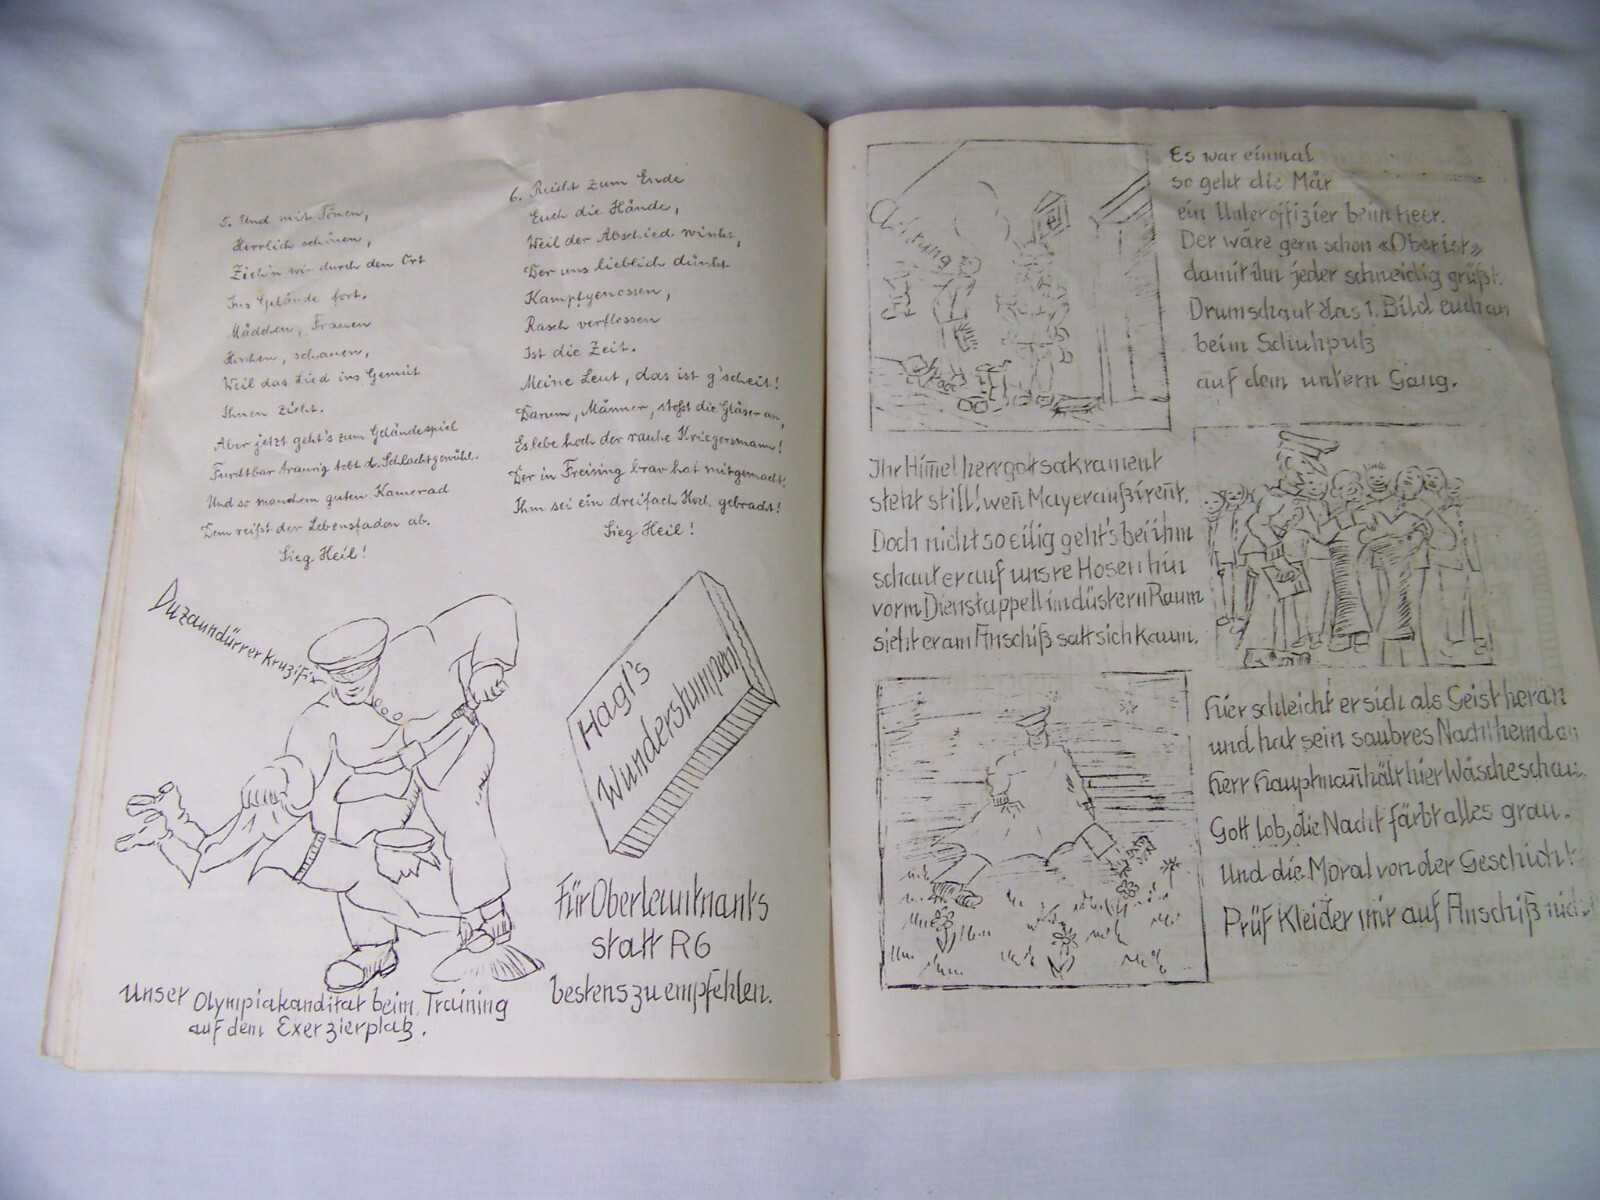 5. Und mit Tönen,
Herrlich schönen,
Zieh'n wir durch den Ort
Ins Gelände fort.
Mädchen, Frauen
Horchen, schauen,
Weil das Lied ins Gemüt
Ihnen zieht.
Aber jetzt geht's zum Geländespiel
Furchtbar traurig tobt d. Schlachtgewühl.
Und so manchem guten Kamerad
Dem reißt der Lebensfaden ab.
Sieg Heil!
6. Reicht zum Ende
Euch die Hände,
Weil der Abschied winkt,
Der uns lieblich dünkt
Kampfgenossen,
Rasch verflossen
Ist die Zeit.
Meine Leut, das ist g'scheit!
Darum, Männer, stoßt die Gläser an,
Es lebe hoch der rauhe Kriegersmann!
Der in Freising brav hat mitgemacht!
Ihm sei ein dreifach Hoch gebracht!
Sieg Heil!
Du zaundürrer Kruzifix
Hagl's
Wunderstumpen
Für Oberleutnants
statt R6
bestens zu empfehlen.
Unser Olympiakanditat beim Training
auf dem Exerzierplatz.
Achtung
Es war einmal
so geht die Mär
ein Unteroffizier beim Heer.
Der wäre gern schon «Oberist»
damit ihn jeder schneidig grüßt.
Drum schaut das 1. Bild euch an
beim Schuhputz
auf dem untern Gang.
Ihr Him̄elherrgottsakrament
steht still! wen̄ Mayer
Doch nicht so eilig geht's bei ihm
schaut er auf unsre Hosen hin
vorm Dienstappell im düstern Raum
sieht er am Anschiß satt sich kaum.
Hier schleicht er sich als Geist heran
und hat sein saubres Nachthemd an
Herr Hauptman̄ hält hier Wäscheschau,
Gott lob, die Nacht färbt alles grau.
Und die Moral von der Geschicht
Prüf Kleider mir auf Anschiß